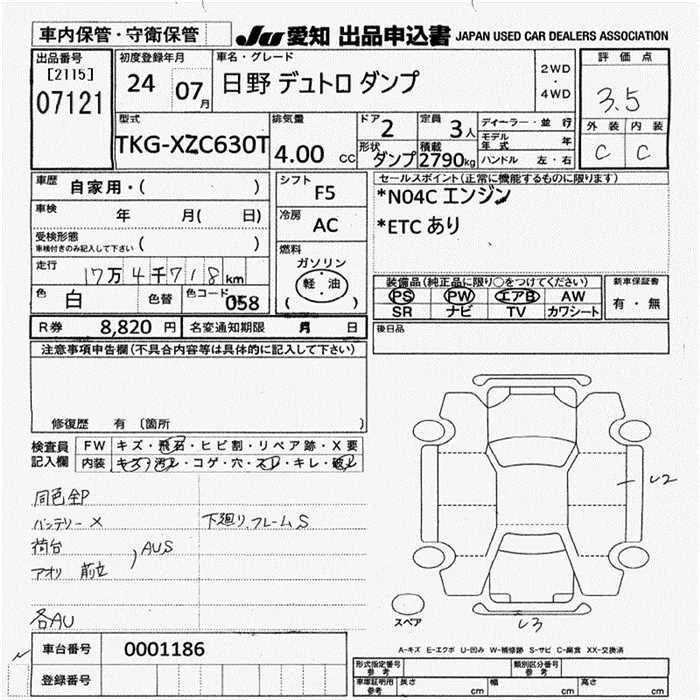 車内保管・守衛保管
JU 愛知 出品申込書 JAPAN USED CAR DEALERS ASSOCIATION
出品番号
[2115]
07121
初度登録年月
24 07月
車名・グレード
日野 デュトロ ダンプ
2WD
・
4WD
評価点
3.5
外装 内装
C C
型式
TKG-XZC630T
排気量
4.00 cc
ドア 2
形状 ダンプ
定員 3人
積載 2790kg
ディーラー・並行
モデル年式 年
ハンドル 左・右
車歴 自家用・( )
車検 年 月( 日)
受検形態
車検付きのみ記入して下さい ( )
走行 17万4千718km
色 白 色替 色コード 058
シフト F5
冷房 AC
燃料
ガソリン
軽・油
( )
セールスポイント(正常に機能するものに限ります)
*N04C エンジン
*ETC あり
装備品(純正品に限り○をつけてください)
PS PW エアB AW
SR ナビ TV カワシート
新車保証書
有・無
後日品
R券 8,820円 名変通知期限 月 日
注意事項申告欄(不具合内容等は具体的に記入して下さい)
修復歴 有 〔箇所 〕
検査員記入欄
FW キズ・飛石・ヒビ割・リペア跡・X要
内装 キズ・汚レ・コゲ・穴・スレ・キレ・破レ
同色全P
バッテリーX
下廻り、フレームS
荷台
アオリ 前立 ,AUS
各AU
U2
U3
スペア
A-キズ E-エクボ U-凹み W-補修跡 S-サビ C-腐食 XX-交換済
車台番号 0001186
登録番号
形式指定番号
参考
類別区分番号
参考
車庫証明用
参考
長さ cm 幅 cm 高さ cm